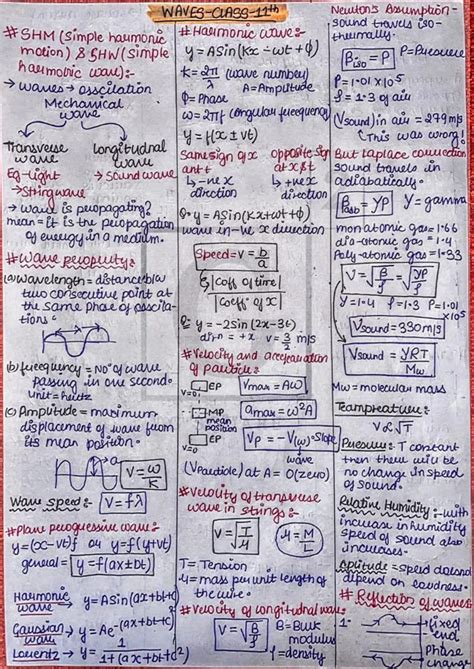 WAVES-CLASS-11th
# SHM (Simple haumonic
motion) & SHW (Simple
haumonic wave):-
→ waves → osscilation
Mechanical
wave
Transverse
wave
Longitudnal
wave
Eg-light
→ Stringwave
→ Sound wave
→ Wave is peopagating?
mean = it is the peopagation
of energy in a medium.
# Wave peopeuty:-
(a) Wavelength = distance b/w
two consecutive point at
the same phase of osscila-
tions
(b) fuequency = No° of wave
passing in one second.
Unit = heutz
(c) Amplitude = maximum
displacement of wave fuom
its mean position.
a
V = ω/K
Wave speed:- V = fλ
# Plane peogressive wave:-
y = (x-vt) or y = f(y+vt)
general = y = f(ax±bt)
Haumonic
wave → y = ASin(ax+bt+c)
Gaussian
wave → y = Ae^-(ax+bt+c)²
Lorentz → y = 1/1+(ax+bt+c)²
# Haumonic wave:-
y = ASin(Kx-ωt+ϕ)
K = 2π/λ (wave number)
A = Amplitude
ϕ = Phase
ω = 2πf (angular fuequency)
y = f(x±vt)
Same sign of x
and t
↳ -ve x
direction
opposite sign
of x & t
↳ +ve x
direction
Q:- y = ASin(Kx+ωt+ϕ)
wave in -ve x diuection
Speed = v = b/a
|Coff of time|
|Coff of x|
Q:- y = -2Sin(2x-3t)
dirn = +x v = 3/2 m/s
# Velocity and acceleuation
of particle:-
V=0
EP
MP
mean
position
EP
V=0
Vmax = Aω
amax = ω²A
Vp = -V(ω)·Slope
wave
(Vparticle) at A = 0 (zero)
# Velocity of transverse
wave in strings:-
V = √T/μ
μ = M/L
T = Tension
μ = mass per unit length of
the wire.
# Velocity of longitudnal wave:
V = √B/ρ
B = Bulk
modulus
ρ = density
Newton's Assumption:-
Sound travels iso-
thermally.
βiso = P
P = Puessure
P = 1.01 × 10⁵
ρ = 1.3 of air
(Vsound) in air = 279 m/s
(This was wrong!)
But laplace connection
Sound travels in
adiabatically.
βadb = γP
γ = gamma
mon atomic gas = 1.66
dia-atomic gas = 1.4
Poly-atomic gas = 1.33
V = √β/ρ = √γP/ρ
γ = 1.4 ρ = 1.3 P = 1.01
×10⁵
Vsound = 330 m/s
Vsound = √γRT/Mw
Mw = molecular mass
Teampreatuue:-
V ∝ √T
Puessuue: T constant
then there will be
no change in speed
of sound.
Relative Humidity:- with
increase in humidity
speed of sound also
increases.
Aplitude = speed doesnd
depend on loudness.
# Reflection of waves
1.
fixed
end
Phase